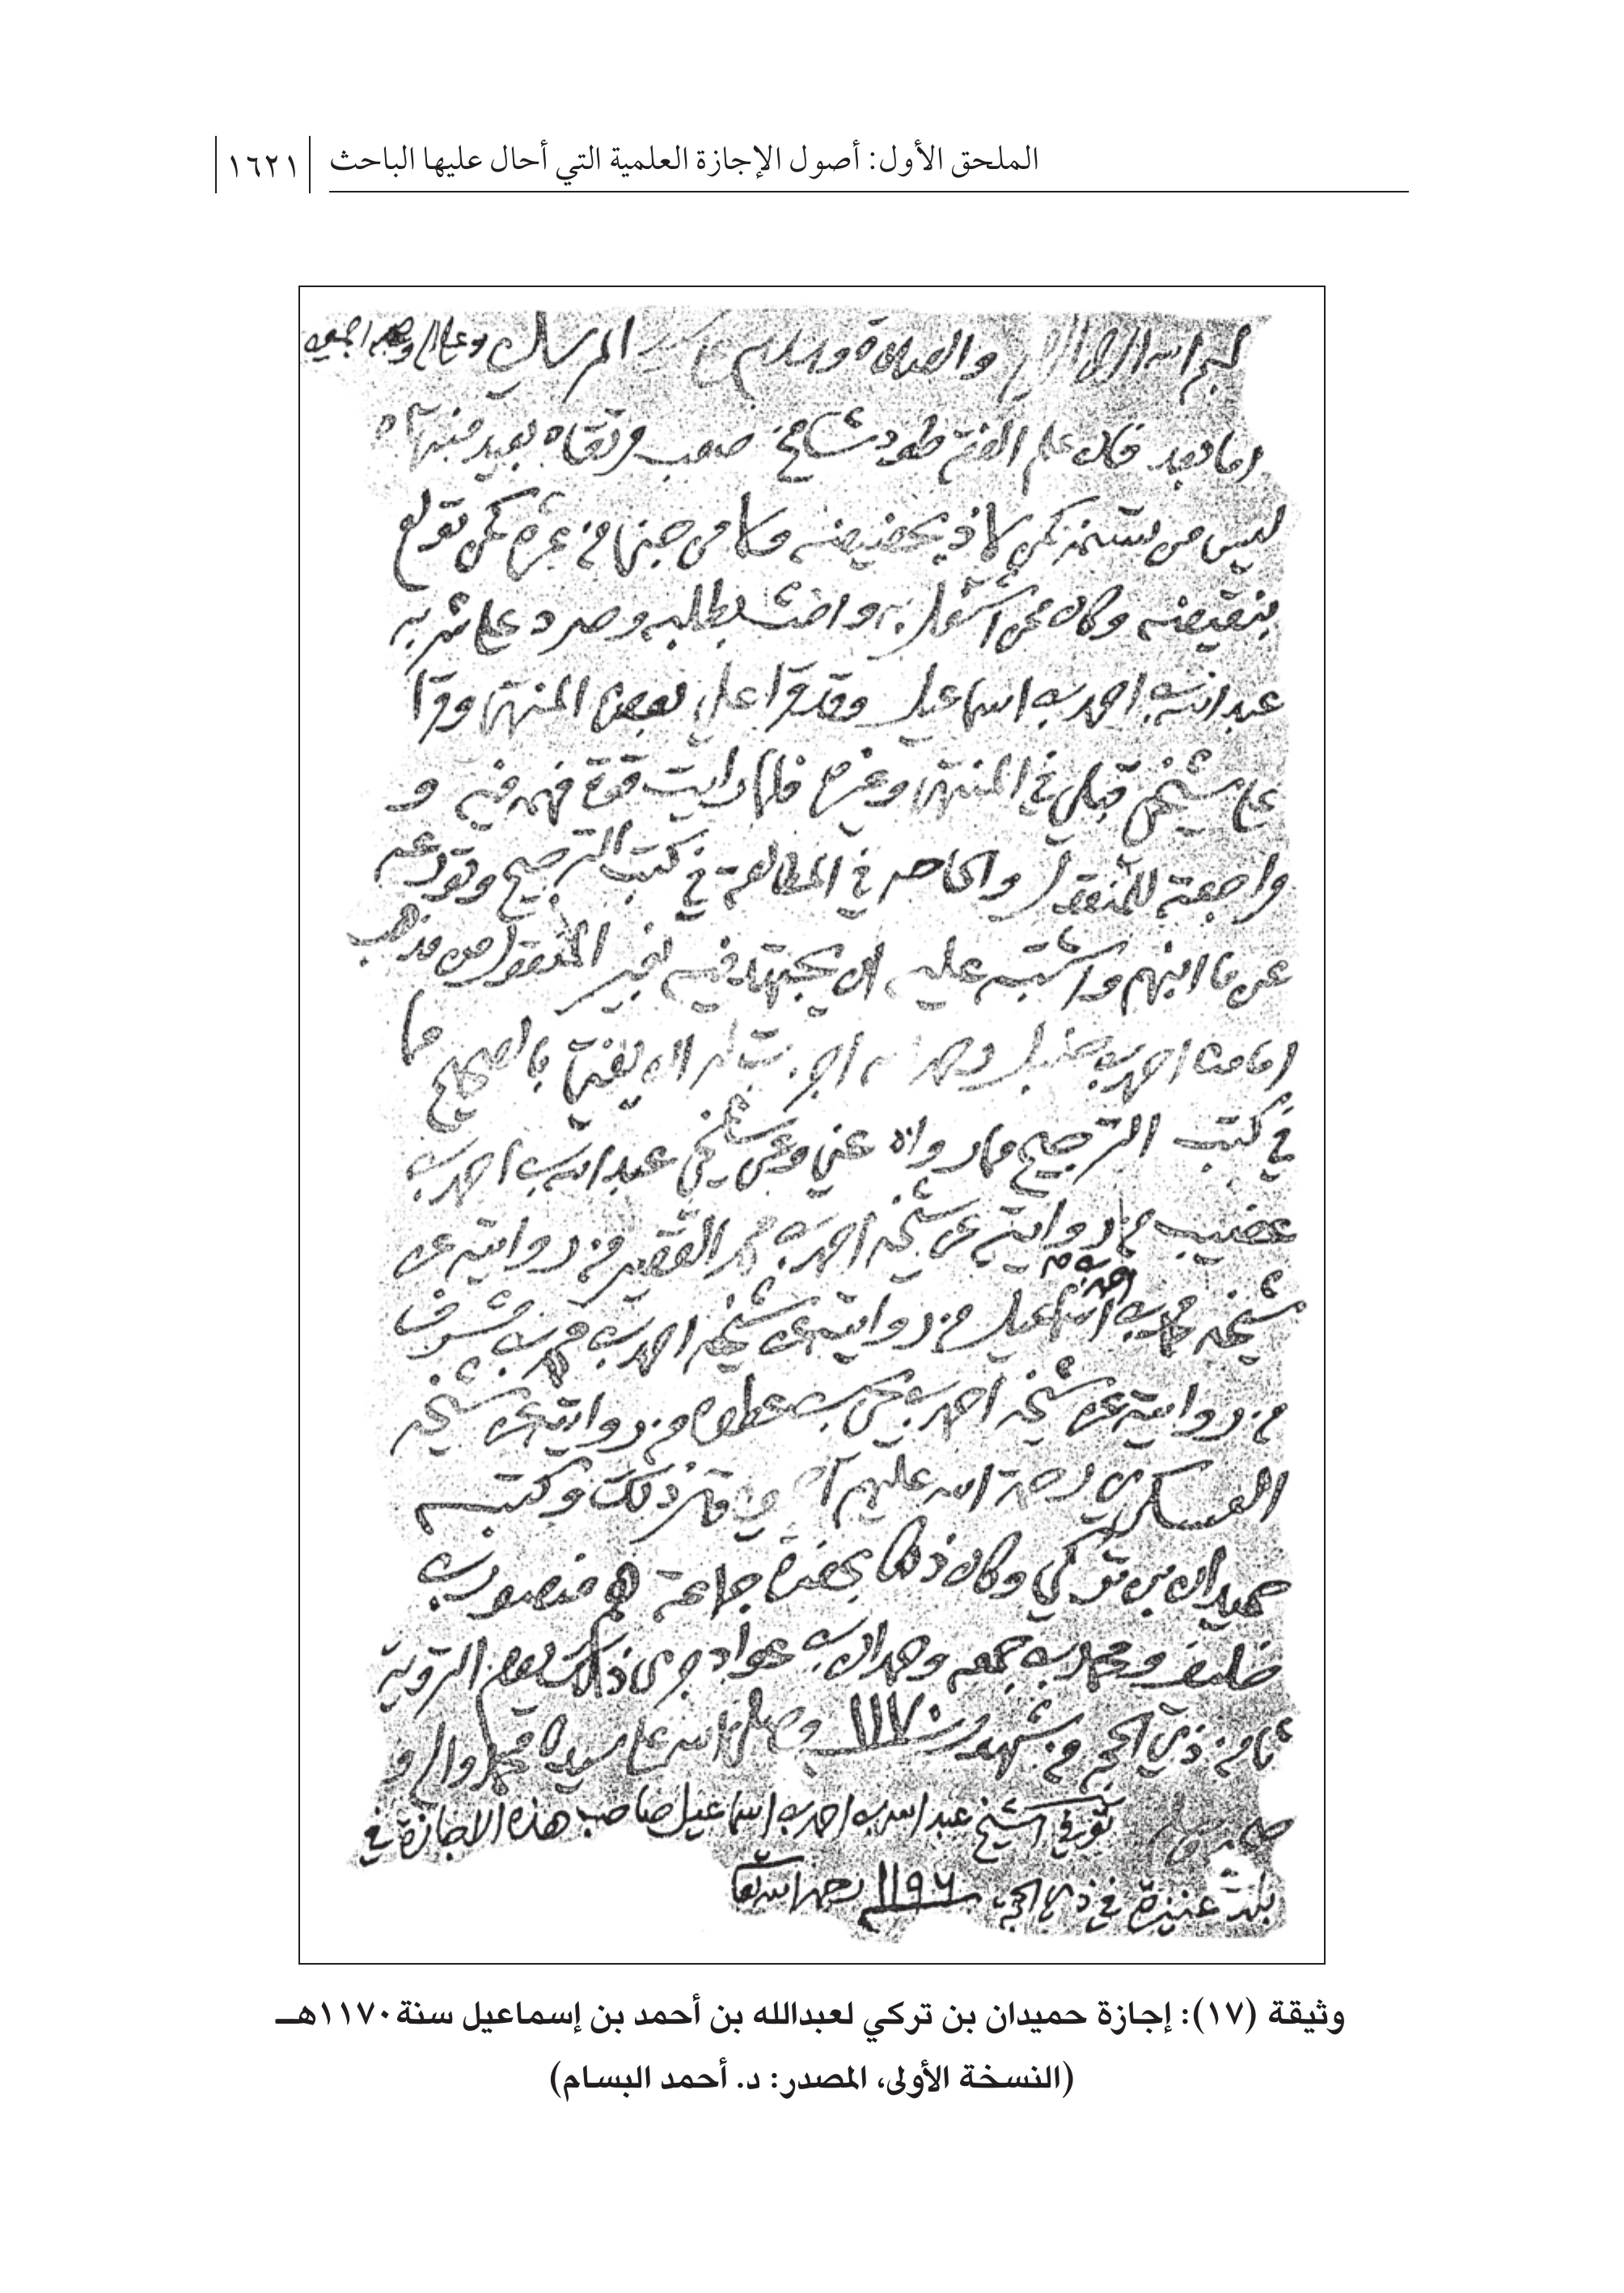 الملحق الأول: أصول الإجازة العلمية التي أحال عليها الباحث
١٦٢١
بسم الله الرحمن الرحيم والصلاة وسلام المرسلين وعلى اله وصحبه اجمعين
اما بعد فان علم الفقه طود شامخ صعب مرتقاه بعيد منتهاه
ليس من كمن لاذ بحضيضه وكا من جنى من ثمره كمن تولع
بنقيضه وكان ممن اشتغل به بطلبه وعلى شربه
عبد الله بن احمد بن اسماعيل وقد قرا علي بعض المنتهى وقرا
على مشيختي قبلي في المنتهى وغيره فلما رايت قوة فهمه فيه و
مراجعته للمنقول في المطالعة في كتب الترجيح وتورعه
عن ما ابهم واشتبه عليه ان يجتهد فيه بغير المنقول من مذهب
امامنا احمد بن حنبل اجزت له ان يفتي بالصحيح مما
في كتب الترجيح مما رواه عني وعن شيخي عبد الله بن احمد بن
عضيب من روايته عن شيخه احمد بن محمد القصير من روايته عن
شيخه محمد بن احمد بن اسماعيل من روايته عن شيخه احمد بن محمد بن مشرف
من روايته عن شيخه احمد بن يحيى بن عطوه من روايته عن شيخه
العسكري رحمة الله عليهم قال ذلك وكتبه
حميدان بن تركي وكان ذلك بحضرة جماعة هم منصور بن
ومحمد بن جمعه وحمدان بن عواد جرى ذلك يوم التروية
ثامن ذي الحجه من شهور سنة ١١٧٠ وصلى الله على سيدنا محمد واله و
صحبه وسلم توفي الشيخ عبد الله بن احمد بن اسماعيل صاحب هذه الاجازة في
بلد عنيزة في ذي الحجة ١١٩٦ رحمه الله تعا
وثيقة (١٧): إجازة حميدان بن تركي لعبدالله بن أحمد بن إسماعيل سنة ١١٧٠هـ
(النسخة الأولى، المصدر: د. أحمد البسام)